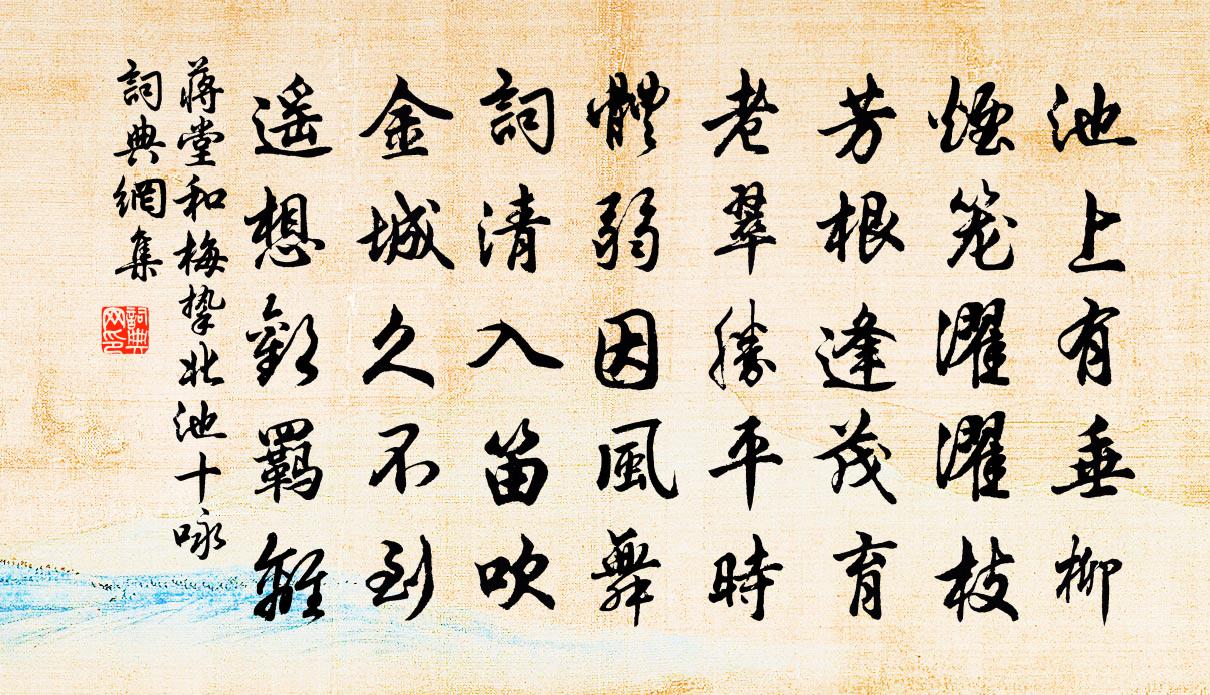 池上有垂柳
煙笼濯濯枝
芳根逢茂育
老翠勝平時
體弱因風舞
詞清入笛吹
金城久不到
遥想歎羈離
蔣堂和梅挚北池十咏
詞典網集
詞典网印